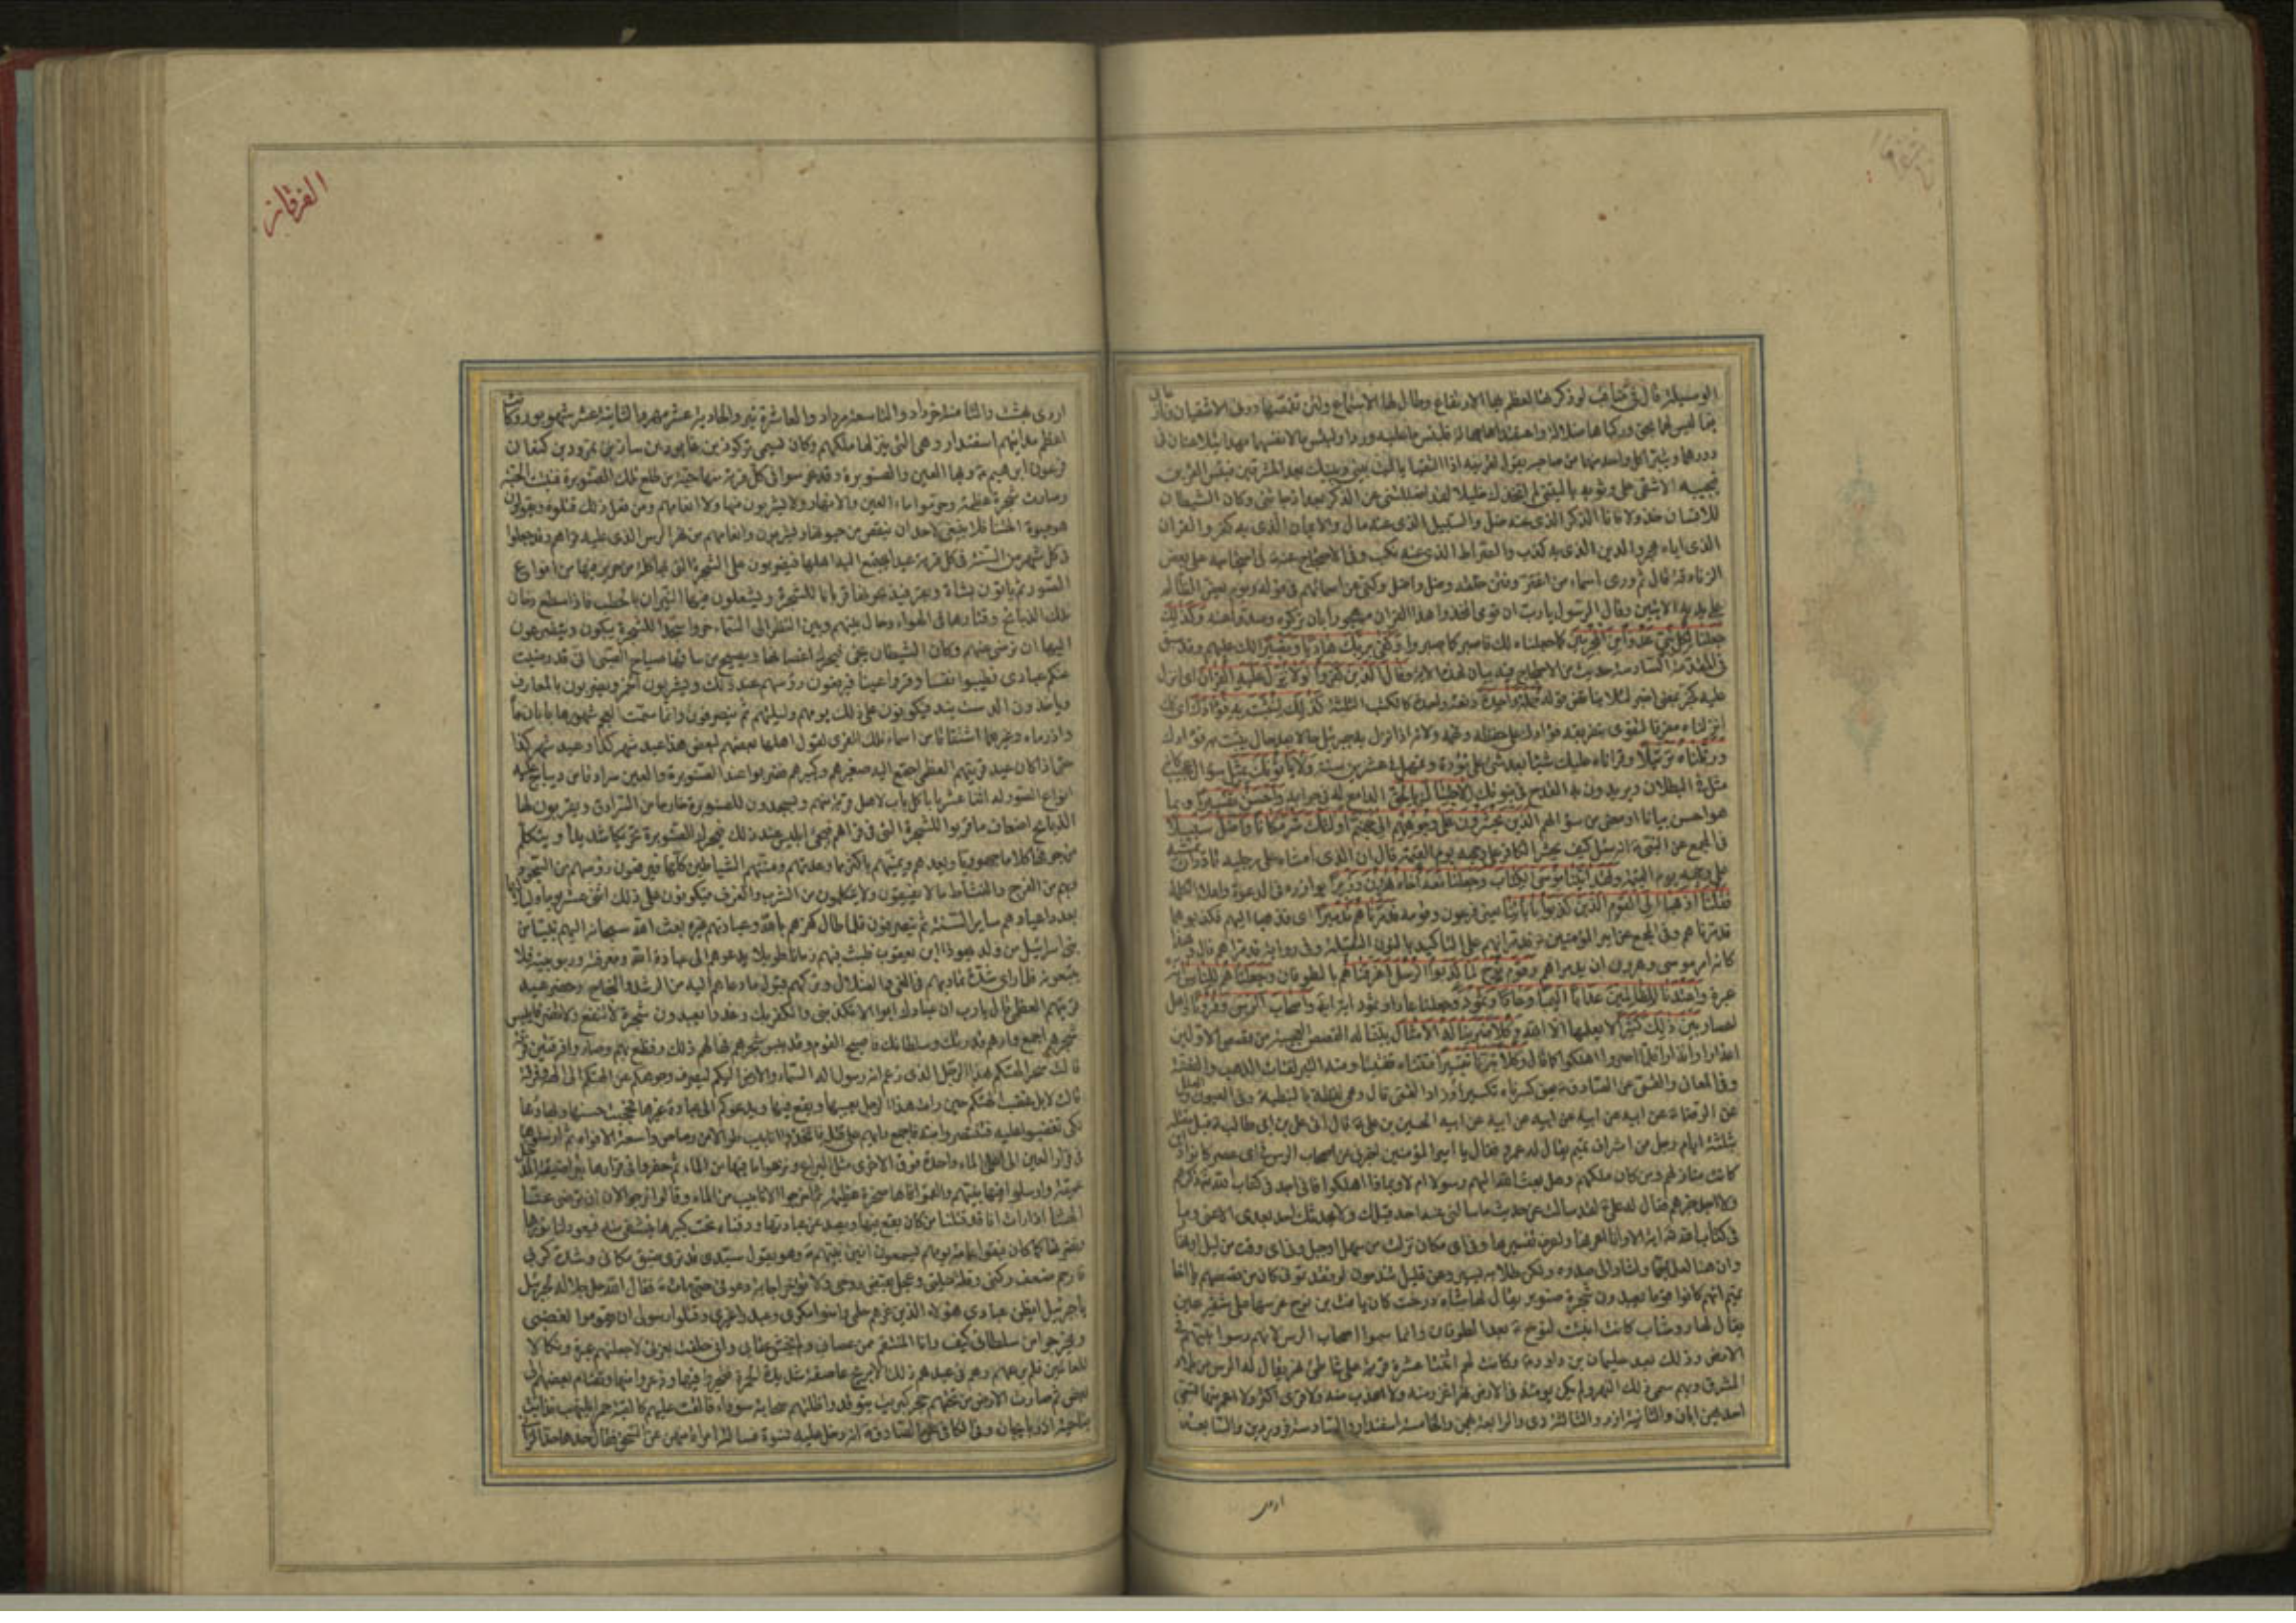 الفرقان
الوسيلة قال في مناقب لو ذكرتها لعظم بها الارتفاع وطال لها الاستماع ولئن تقمصها دوني الاشقيان ونازعاني
فيما ليس لهما بحق وركباها ضلالة واعتقداها جهالة فلبئس ما عليه وردا ولبئس ما لانفسهما مهدا يتلاعنان في
دورهما ويتبرأ كل واحد منهما من صاحبه يقول لقرينه اذا التقيا يا ليت بيني وبينك بعد المشرقين فبئس القرين
فيجيبه الاشقى على رثوثة يا ليتني لم اتخذك خليلا لقد اضللتني عن الذكر بعد اذ جاءني وكان الشيطان
للانسان خذولا فانا الذكر الذي عنه ضل والسبيل الذي عنه مال والايمان الذي به كفر والقران
الذي اياه هجر والدين الذي به كذب والصراط الذي عنه نكب وفي الاحتجاج عنه في احتجاجه على بعض
الزنادقة قال
وقال الرسول يا رب ان قومي اتخذوا هذا القران مهجورا بان تركوه وصدوا عنه وكذلك
جعلنا لكل نبي عدوا من المجرمين كما جعلناه لك فاصبر كما صبروا وكفى بربك هاديا ونصيرا لك عليهم وقد سبق
في المقدمة السادسة حديث من الاحتجاج فيه بيان لهذه الاية وقال الذين كفروا لولا نزل عليه القران اي انزل
عليه كخبر بمعنى اخبر لئلا يناقض قوله جملة واحدة دفعة واحدة كالكتب الثلثة كذلك لنثبت به فؤادك اي كذلك
انزلناه مفرقا لنقوي بتفريقه فؤادك على حفظه وفهمه ولانه اذا نزل به جبرئيل حالا بعد حال يثبت به فؤادك
ورتلناه ترتيلا وقراناه عليك شيئا بعد شيء على تؤدة وتمهل في عشرين سنة ولا ياتونك بمثل سؤال عجيب كانه
مثل في البطلان يريدون به القدح في نبوتك الا جئناك بالحق الدامغ له في جوابه واحسن تفسيرا وبما
هو احسن بيانا او معنى من سؤالهم الذين يحشرون على وجوههم الى جهنم اولئك شر مكانا واضل سبيلا
في المجمع عن النبي انه سئل كيف يحشر الكافر على وجهه يوم القيمة قال ان الذي امشاه على رجليه قادر ان يمشيه
على وجهه يوم القيمة ولقد اتينا موسى الكتاب وجعلنا معه اخاه هرون وزيرا يوازره في الدعوة واعلاء الكلمة
فقلنا اذهبا الى القوم الذين كذبوا باياتنا يعني فرعون وقومه فدمرناهم تدميرا اي فذهبا اليهم فكذبوهما
فدمرناهم وفي المجمع عن امير المؤمنين فدمرانهم على التاكيد بالنون الثقيلة وفي رواية فدمراهم قال وهذا
كانه امر موسى وهرون ان يدمراهم وقوم نوح لما كذبوا الرسل اغرقناهم بالطوفان وجعلناهم للناس اية
عبرة واعتدنا للظالمين عذابا اليما وعادا وثمود وجعلنا عادا وثمود اية ايضا واصحاب الرس وقرونا اهل
اعصار بين ذلك كثيرا لا يعلمها الا الله وكلا ضربنا له الامثال بينا له القصص العجيبة من قصص الاولين
اعذارا وانذارا فلما اصروا اهلكوا كما قال وكلا تبرنا تتبيرا فتتناه تفتيتا ومنه التبر لفتات الذهب والفضة
وفي المعاني والقمي عن الصادق يعني كسرناه تكسيرا وزاد القمي قال وهي لفظة بالنبطية وفي العيون والعلل
عن الرضا عن ابيه عن ابيه عن ابيه عن ابيه عن ابيه الحسين بن علي قال اتى علي بن ابي طالب قبل مقتله
بثلثة ايام رجل من اشراف تميم يقال له عمرو فقال يا امير المؤمنين اخبرني عن اصحاب الرس في اي عصر كانوا واين
كانت منازلهم ومن كان ملكهم وهل بعث الله اليهم رسولا ام لا وبماذا اهلكوا فاني اجد في كتاب الله ذكرهم
ولا اجد خبرهم فقال له علي لقد سالت عن حديث ما سالني عنه احد قبلك ولا يحدثك احد بعدي الا عني وما
في كتاب الله اية الا وانا اعرفها واعرف تفسيرها وفي اي مكان نزلت من سهل او جبل وفي اي وقت من ليل او نهار
وان هنا لعلما جما واشار الى صدره ولكن طلابه يسير وعن قليل يندمون لو فقدتموني كان من قصصهم يا اخا
تميم انهم كانوا قوما يعبدون شجرة صنوبر يقال لها شاه درخت كان يافث بن نوح غرسها على شفير عين
يقال لها روشاب كانت انبتت لنوح بعد الطوفان وانما سموا اصحاب الرس لانهم رسوا نبيهم في
الارض وذلك بعد سليمان بن داود وكانت لهم اثنتا عشرة قرية على شاطئ نهر يقال له الرس من بلاد
المشرق وبهم سمي ذلك النهر ولم يكن يومئذ في الارض نهر اغزر منه ولا اعذب منه ولا قرى اكثر ولا اعمر منها تسمى
احديهن ابان والثانية اذر والثالثة دي والرابعة بهمن والخامسة اسفندار والسادسة فروردين والسابعة
اردي
الفرقان
اردي بهشت والثامنة خرداد والتاسعة مرداد والعاشرة تير والحادية عشر مهر والثانية عشر شهريور وكانت
اعظم مدائنهم اسفندار وهي التي ينزلها ملكهم وكان يسمى تركوذ بن غابور بن يارش بن سازن بن نمرود بن كنعان
فرعون ابرهيم وبها العين والصنوبرة وقد غرسوا في كل قرية منها حبة من طلع تلك الصنوبرة فنبتت الحبة
وصارت شجرة عظيمة وحرموا ماء العين والانهار ولا يشربون منها ولا انعامهم ومن فعل ذلك قتلوه ويقولون
هو حيوة الهتنا فلا ينبغي لاحد ان ينقص من حيوتها ويشربون وانعامهم من نهر الرس الذي عليه قراهم وقد جعلوا
في كل شهر من السنة في كل قرية عيدا يجتمع اليه اهلها فيضربون على الشجرة التي بها كلة من حرير فيها من انواع
الصور ثم ياتون بشاة وبقر فيذبحونها قربانا للشجرة ويشعلون فيها النيران بالحطب فاذا سطع دخان
تلك الذبائح وقتارها في الهواء وحال بينهم وبين النظر الى السماء خروا سجدا للشجرة يبكون ويتضرعون
اليها ان ترضى عنهم وكان الشيطان يجيء فيحرك اغصانها ويصيح من ساقها صياح الصبي اني قد رضيت
عنكم عبادي فطيبوا نفسا وقروا عينا فيرفعون رؤسهم عند ذلك ويشربون الخمر ويضربون بالمعازف
وياخذون الدست بند فيكونون على ذلك يومهم وليلتهم ثم ينصرفون وانما سمت العجم شهورها بابان ماه
واذرماه وغيرهما اشتقاقا من اسماء تلك القرى لقول اهلها بعضهم لبعض هذا عيد شهر كذا وعيد شهر كذا
حتى اذا كان عيد قريتهم العظمى اجتمع اليه صغيرهم وكبيرهم فضربوا عند الصنوبرة والعين سرادقا من ديباج عليه
انواع الصور له اثنا عشر بابا كل باب لاهل قرية منهم ويسجدون للصنوبرة خارجا من السرادق ويقربون لها
الذبايح اضعاف ما قربوا للشجرة التي في قراهم فيجيء ابليس عند ذلك فيحرك الصنوبرة تحريكا شديدا ويتكلم
من جوفها كلاما جهوريا ويعدهم ويمنيهم باكثر مما وعدتهم ومنتهم الشياطين كلها فيرفعون رؤسهم من السجود و
بهم من الفرح والنشاط ما لا يفيقون ولا يتكلمون من الشرب والعزف فيكونون على ذلك اثني عشر يوما ولياليها
بعدد اعيادهم ساير السنة ثم ينصرفون فلما طال كفرهم بالله وعبادتهم غيره بعث الله سبحانه اليهم نبيا من
بني اسرائيل من ولد يهودا ابن يعقوب فلبث فيهم زمانا طويلا يدعوهم الى عبادة الله ومعرفة ربوبيته فلا
يتبعونه فلما راى شدة تماديهم في الغي والضلال وتركهم قبول ما دعاهم اليه من الرشد والنجاح وحضر عيد
قريتهم العظمى قال يا رب ان عبادك ابوا الا تكذيبي والكفر بك وغدوا يعبدون شجرة لا تنفع ولا تضر فايبس
شجرهم اجمع وارهم قدرتك وسلطانك فاصبح القوم وقد يبس شجرهم فهالهم ذلك وقطع بهم وصاروا فرقتين فرقة
قالت سحر الهتكم هذا الرجل الذي زعم انه رسول اله السماء والارض اليكم ليصرف وجوهكم عن الهتكم الى الهه وفرقة
قالت لا بل غضبت الهتكم حين رات هذا الرجل يعيبها ويقع فيها ويدعوكم الى عبادة غيرها فحجبت حسنها وبهاءها
لكي تغضبوا عليه فتنتصروا منه فاجمع رايهم على قتله فاتخذوا انابيب طوالا من رصاص واسعة الافواه ثم ارسلوها
في قرار العين الى اعلى الماء واحدة فوق الاخرى مثل البرابخ ونزحوا ما فيها من الماء ثم حفروا في قرارها بئرا ضيقة المدخل
عميقة وارسلوا فيها نبيهم والقموا فاها صخرة عظيمة ثم اخرجوا الانابيب من الماء وقالوا نرجو الان ان ترضى عنا
الهتنا اذا رات انا قد قتلنا من كان يقع فيها ويصد عن عبادتها ودفناه تحت كبيرها يتشفى منه فيعود لنا نورها
ونضرتها كما كان فبقوا عامة يومهم يسمعون انين نبيهم وهو يقول سيدي قد ترى ضيق مكاني وشدة كربي
فارحم ضعف ركني وقلة حيلتي وعجل بقبض روحي ولا تؤخر اجابة دعوتي حتى مات فقال الله جل جلاله لجبرئيل
يا جبرئيل ايظن عبادي هؤلاء الذين غرهم حلمي وامنوا مكري وعبدوا غيري وقتلوا رسولي ان يقوموا لغضبي
ويخرجوا من سلطاني كيف وانا المنتقم ممن عصاني ولم يخش عقابي واني حلفت بعزتي لاجعلنهم عبرة ونكالا
للعالمين فلم يرعهم وهم في عيدهم ذلك الا بريح عاصفة شديدة الحمرة فتحيروا فيها وذعروا منها وتضام بعضهم الى
بعض ثم صارت الارض من تحتهم حجر كبريت يتوقد واظلتهم سحابة سوداء فالقت عليهم كالقبة جمرا يلتهب فذابت
بناحية اذربايجان وفي الكافي عن الصادق انه دخل عليه نسوة فسالته امراة منهن عن السحق فقال حدها حد الزاني